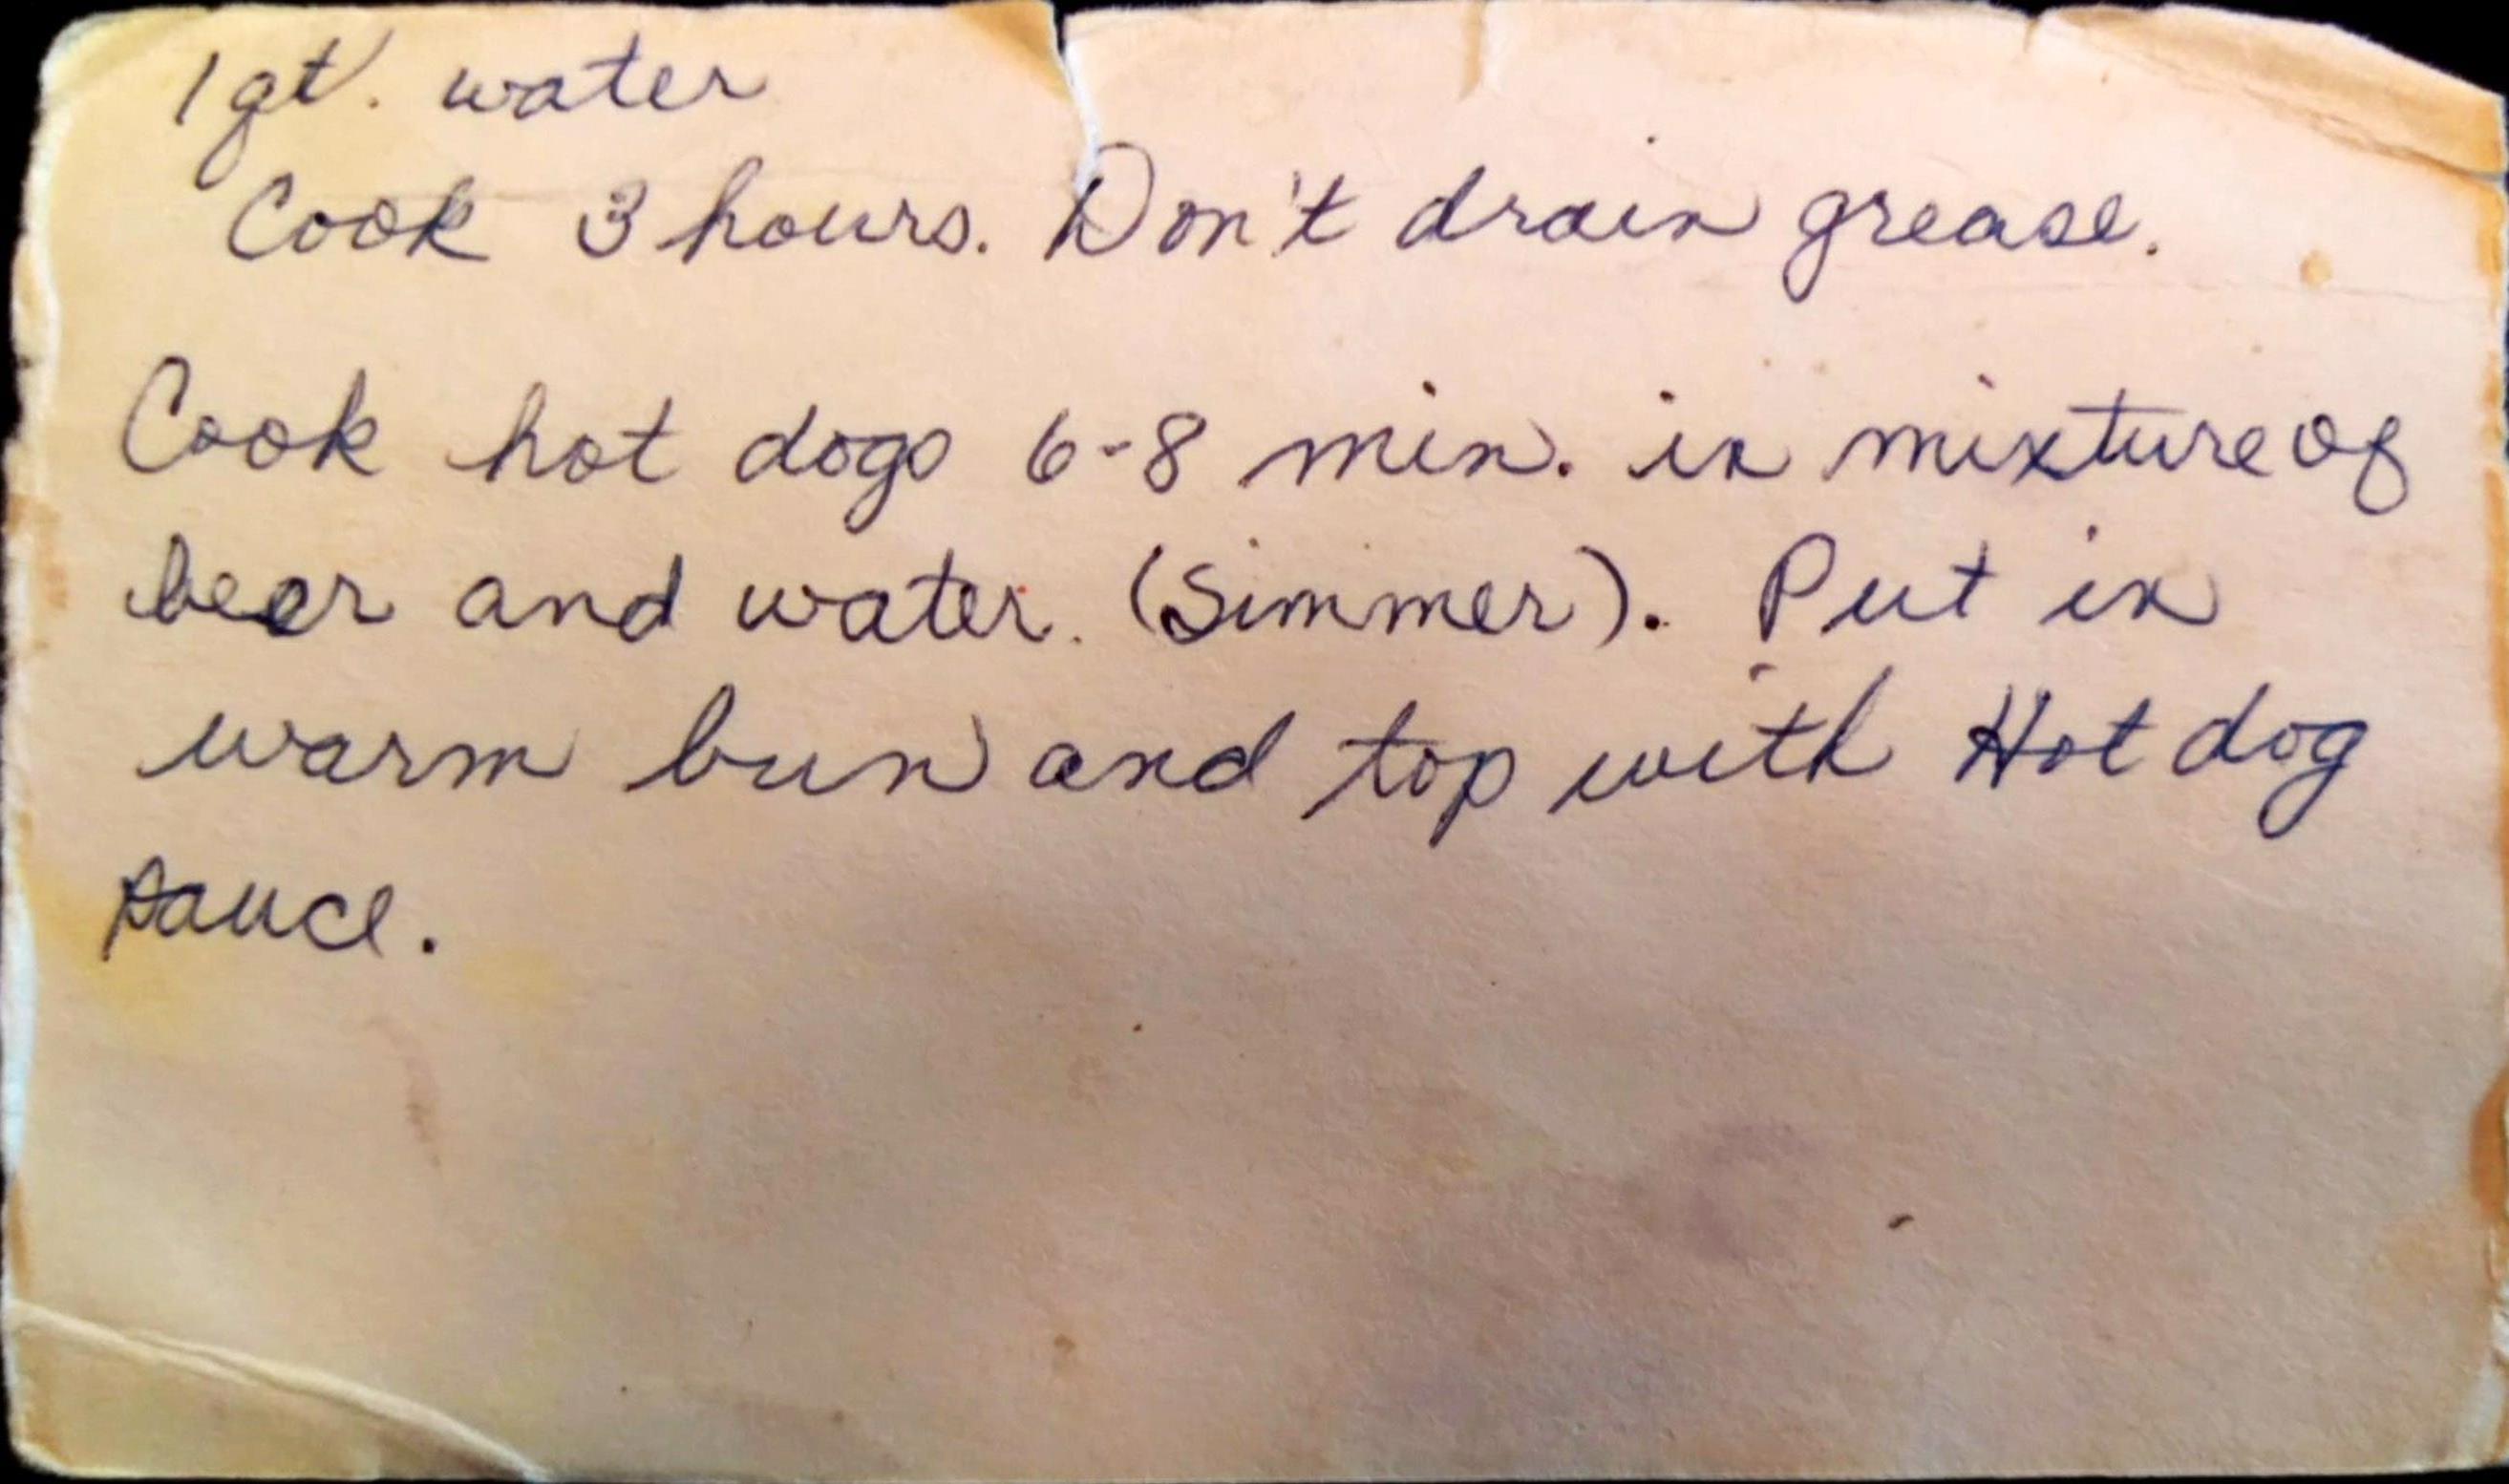 1 qt. water
Cook 3 hours. Don't drain grease.
Cook hot dogs 6-8 min. in mixture of
beer and water. (Simmer). Put in
warm bun and top with Hot dog
sauce.